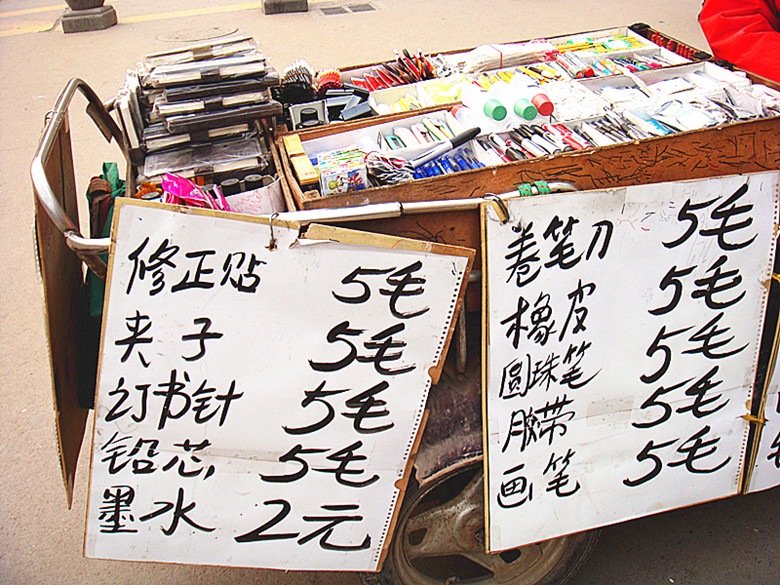 修正贴 5毛
夹子 5毛
订书针 5毛
铅芯 5毛
墨水 2元
卷笔刀 5毛
橡皮 5毛
圆珠笔 5毛
胶带 5毛
画笔 5毛